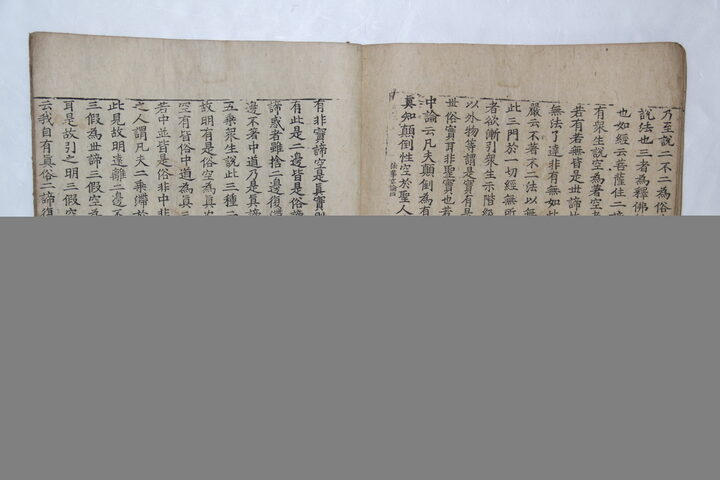 乃至說二不二為俗
說法也三者為釋佛
也如經云菩薩住二諦
有衆生說空為著空
若有若無皆是世諦
無法了達非有無如
嚴云不著不二法以無
此三門於一切經無所
者欲漸引衆生示階級
以外物等謂是實有是
世俗實耳非聖實也若
中論云凡夫顛倒為有
真知顛倒性空於聖人
有非實諦空是真實則
有此是二邊皆是俗諦
諦或者雖捨二邊復滯
邊不著中道乃是真諦
五乘衆生說此三種二
故明有是俗空為真
空有皆俗中道為真
若中並皆是俗非中非
之人謂凡夫二乘滯於
此見故明遠離二邊不
三假為世諦三假空為
耳是故引之明三假空
云我自有真俗二諦復